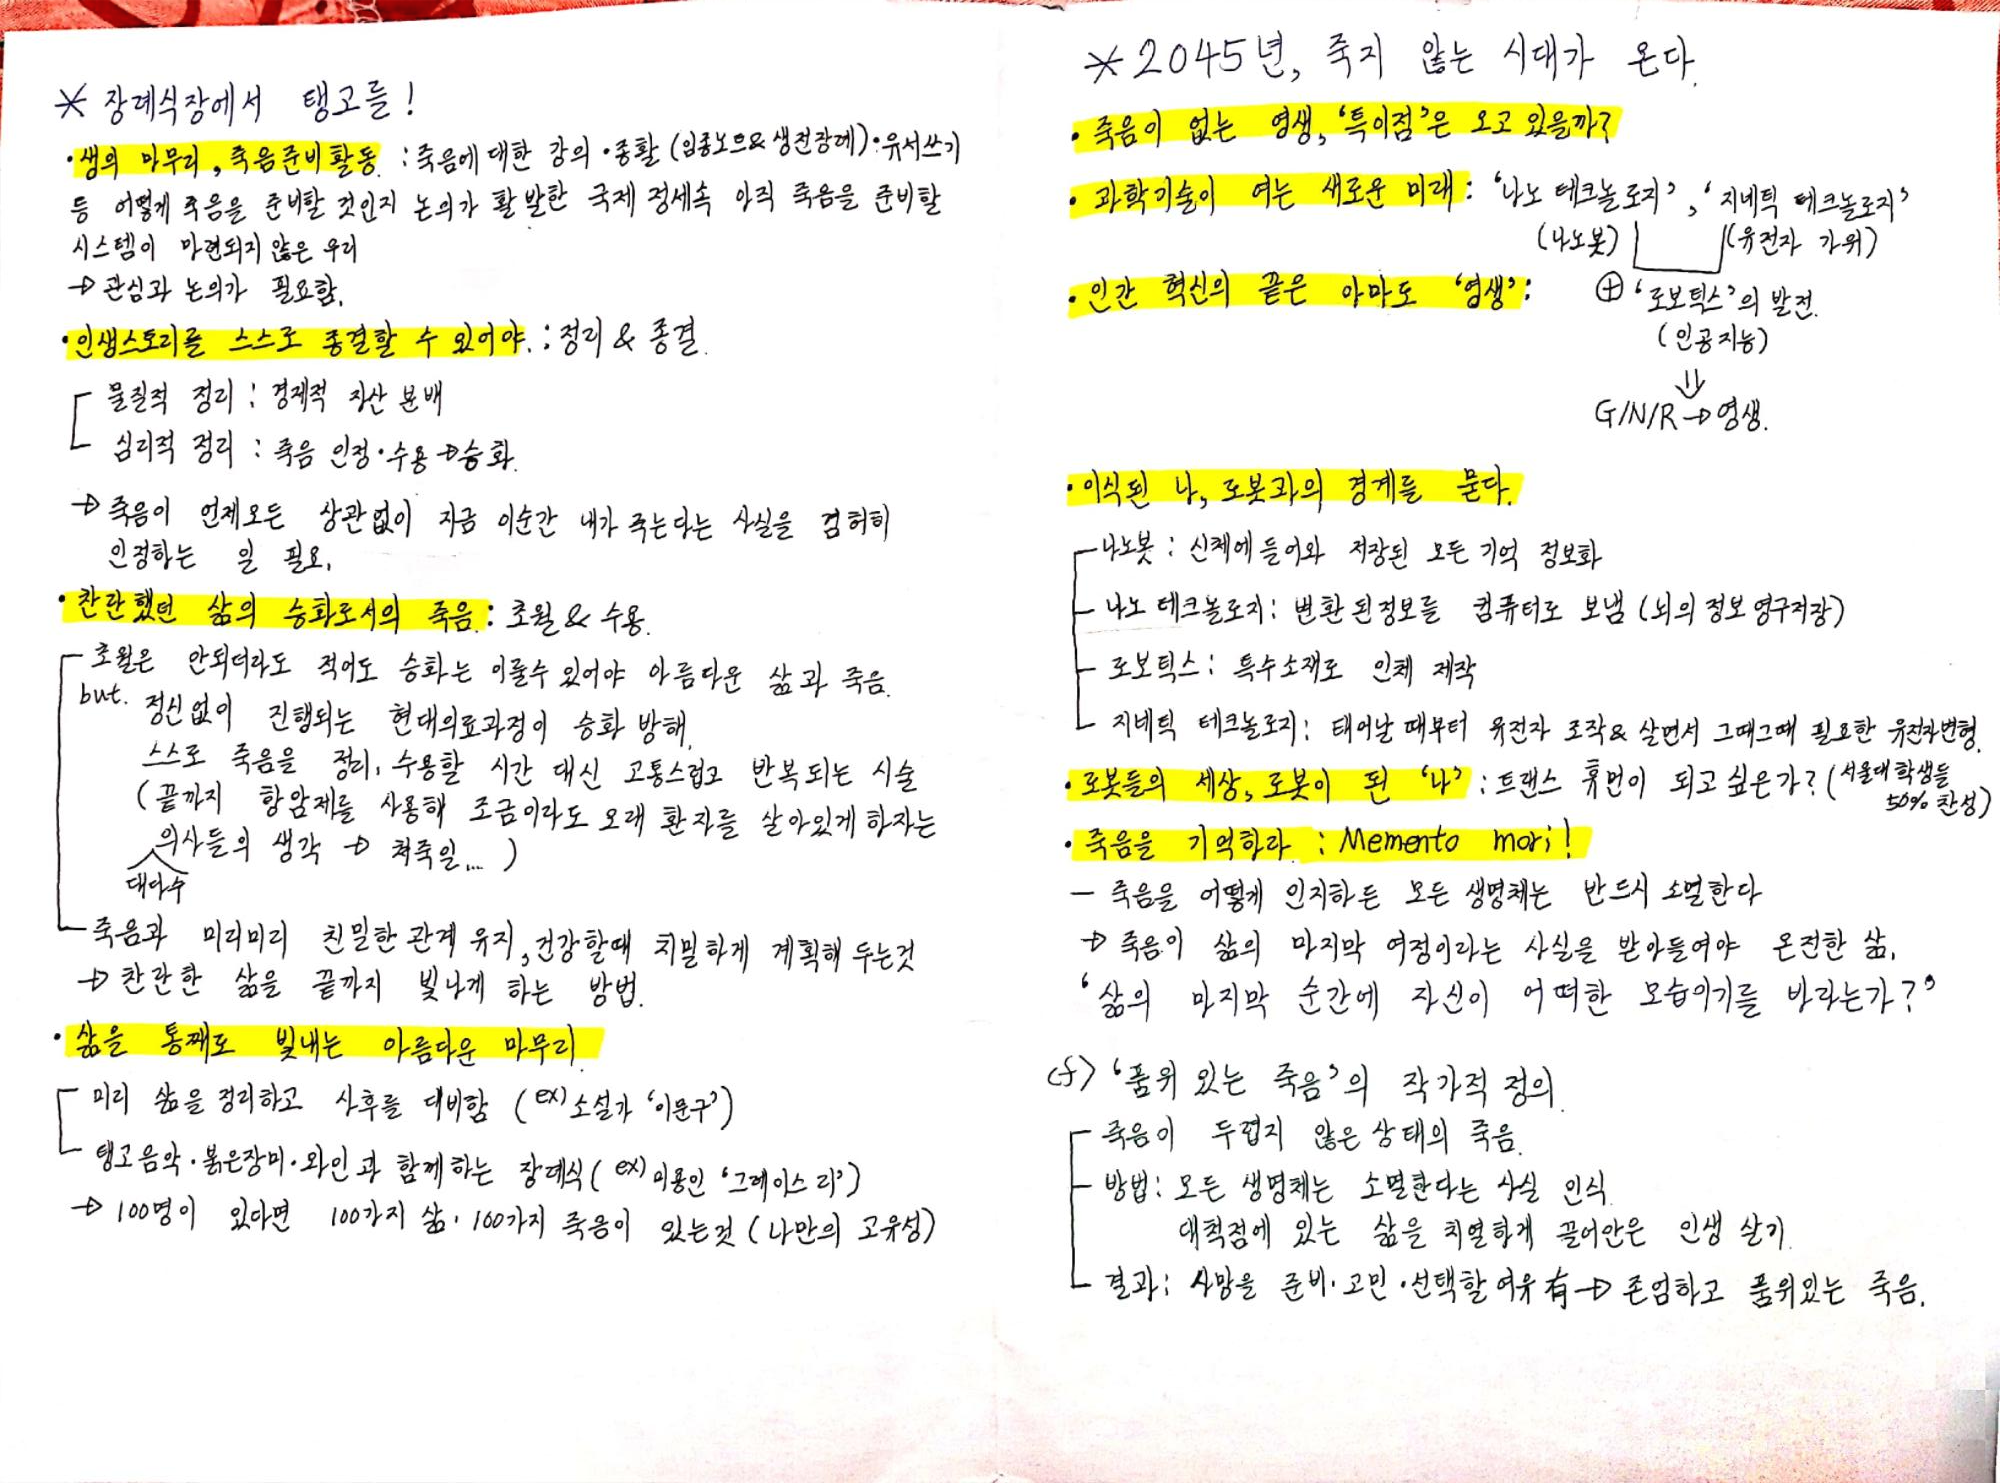 * 장례식장에서 탱고를!
· 생의 마무리, 죽음준비활동 : 죽음에 대한 강의·종활(임종노트&생전장례)·유서쓰기
등 어떻게 죽음을 준비할 것인지 논의가 활발한 국제 정세속 아직 죽음을 준비할
시스템이 마련되지 않은 우리
→ 관심과 논의가 필요함.
· 인생스토리를 스스로 종결할 수 있어야. : 정리 & 종결.
물질적 정리 : 경제적 자산 분배
심리적 정리 : 죽음 인정·수용→승화.
→ 죽음이 언제오든 상관없이 지금 이순간 내가 죽는다는 사실을 겸허히
인정하는 일 필요.
· 찬란했던 삶의 승화로서의 죽음. : 초월 & 수용.
초월은 안되더라도 적어도 승화는 이룰수 있어야 아름다운 삶과 죽음.
but. 정신없이 진행되는 현대의료과정이 승화 방해.
스스로 죽음을 정리, 수용할 시간 대신 고통스럽고 반복되는 시술
(끝까지 항암제를 사용해 조금이라도 오래 환자를 살아있게 하자는
의사들의 생각 → 쳐죽일... )
대다수
죽음과 미리미리 친밀한 관계 유지, 건강할때 치밀하게 계획해 두는것
→ 찬란한 삶을 끝까지 빛나게 하는 방법.
· 삶을 통째로 빛내는 아름다운 마무리.
미리 삶을 정리하고 사후를 대비함 (ex) 소설가 '이문구')
탱고음악·붉은장미·와인과 함께하는 장례식(ex) 미용인 '그레이스 리')
→ 100명이 있다면 100가지 삶·100가지 죽음이 있는것 (나만의 고유성)
* 2045년, 죽지 않는 시대가 온다.
· 죽음이 없는 영생, '특이점'은 오고 있을까?
· 과학기술이 여는 새로운 미래 : '나노 테크놀로지', '지네틱 테크놀로지'
(나노봇) (유전자 가위)
· 인간 혁신의 끝은 아마도 '영생' : ⊕ '로보틱스'의 발전.
(인공지능)
⇓
G/N/R → 영생.
· 이식된 나, 로봇과의 경계를 묻다.
나노봇 : 신체에 들어와 저장된 모든 기억 정보화
나노 테크놀로지 : 변환된 정보를 컴퓨터로 보냄 (뇌의 정보 영구저장)
로보틱스 : 특수소재로 인체 제작
지네틱 테크놀로지 : 태어날 때부터 유전자 조작 & 살면서 그때그때 필요한 유전자변형.
· 로봇들의 세상, 로봇이 된 '나' : 트랜스 휴먼이 되고 싶은가? (서울대 학생들
50% 찬성)
· 죽음을 기억하라 : Memento mori!
— 죽음을 어떻게 인지하든 모든 생명체는 반드시 소멸한다
→ 죽음이 삶의 마지막 여정이라는 사실을 받아들여야 온전한 삶.
'삶의 마지막 순간에 자신이 어떠한 모습이기를 바라는가?'
cf) '품위 있는 죽음'의 작가적 정의.
죽음이 두렵지 않은 상태의 죽음.
방법 : 모든 생명체는 소멸한다는 사실 인식.
대척점에 있는 삶을 치열하게 끌어안은 인생 살기.
결과 : 사망을 준비·고민·선택할 여유 有 → 존엄하고 품위있는 죽음.